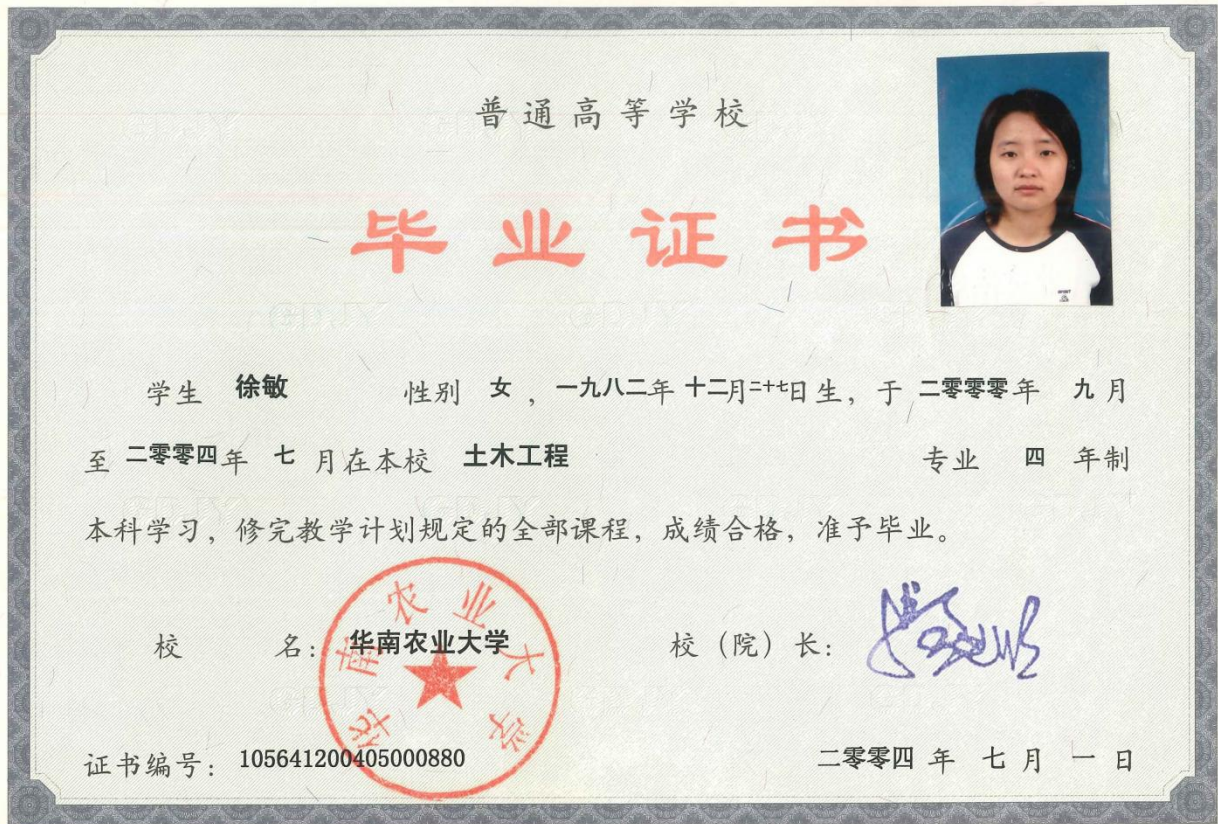 普通高等学校
毕业证书
学生 徐敏 性别 女 ,一九八二年 十二月二十七日生,于 二零零零年 九月
至 二零零四年 七 月在本校 土木工程 专业 四 年制
本科学习,修完教学计划规定的全部课程,成绩合格,准予毕业。
校 名: 华南农业大学 校(院)长:
华南农业大学
证书编号: 105641200405000880 二零零四 年 七 月 一 日